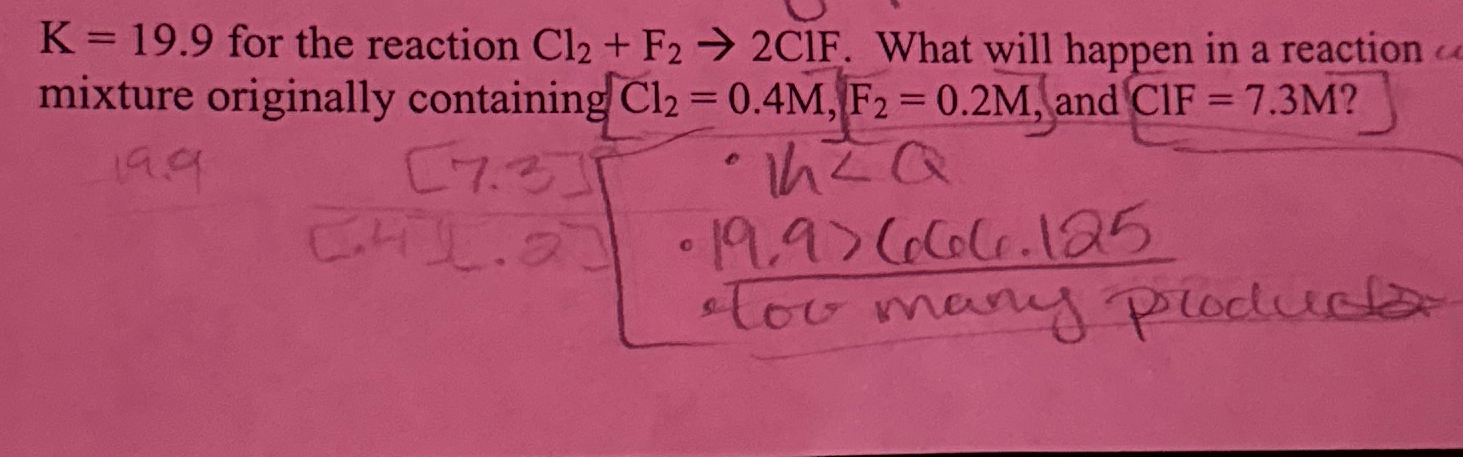 K = 19.9 for the reaction Cl₂ + F₂ → 2ClF. What will happen in a reaction
mixture originally containing [Cl₂ = 0.4M,] [F₂ = 0.2M,] and [ClF = 7.3M?]
19.9 [7.3]
[.4][.2]
• K < Q
• 19.9 > 666.125
• too many products